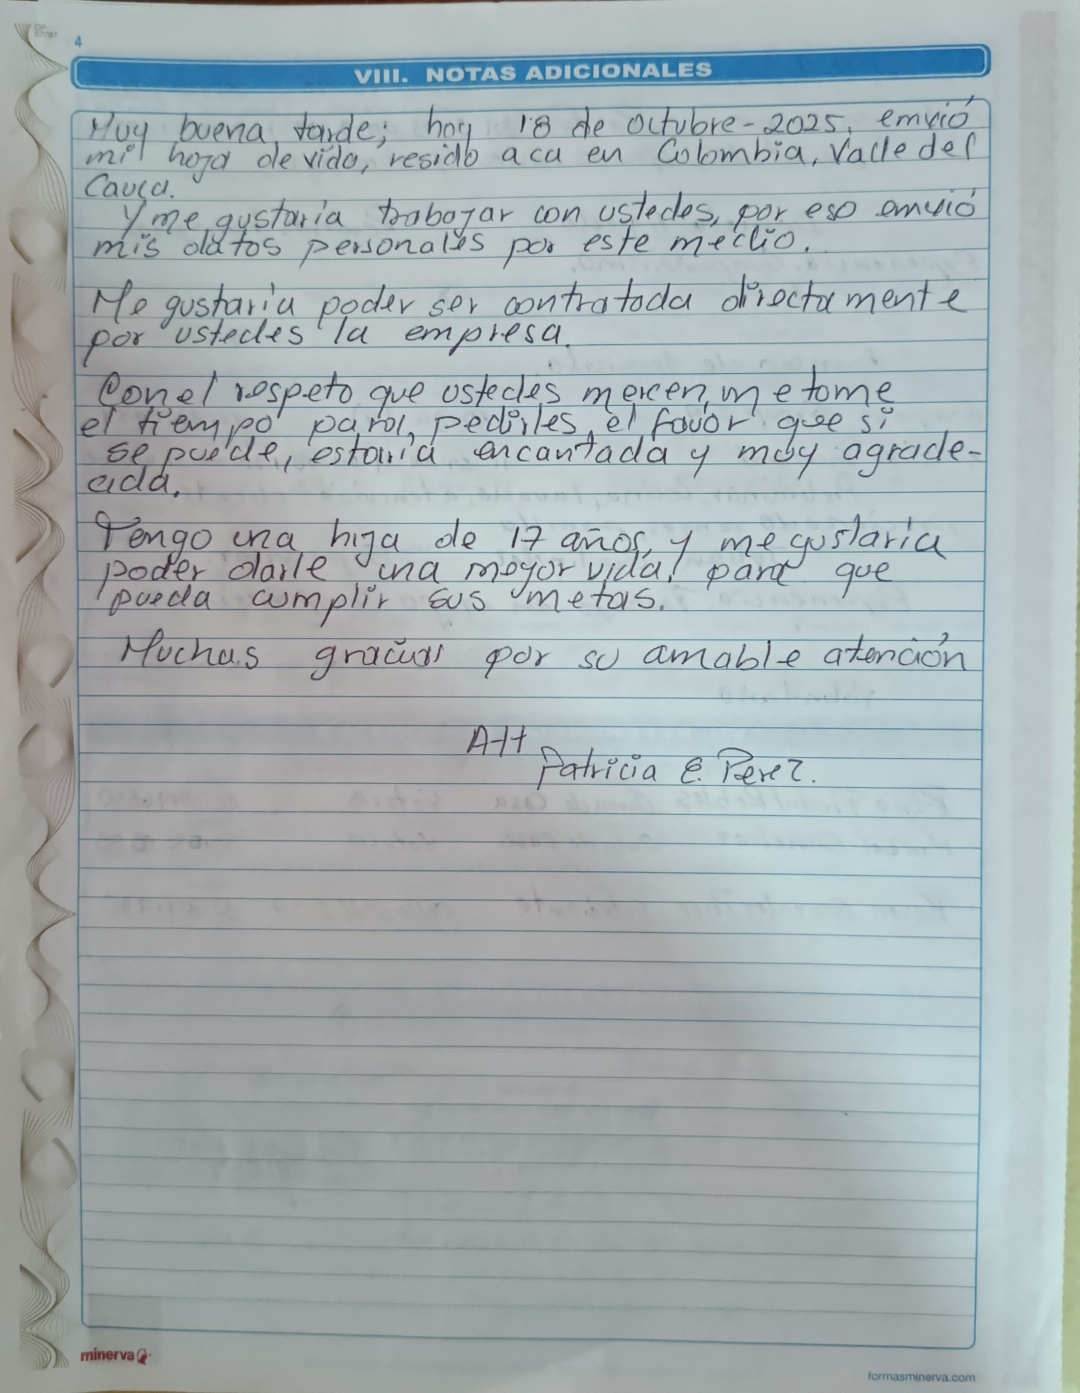 4
VIII. NOTAS ADICIONALES
Muy buena tarde; hoy 18 de Octubre-2025, emvió
mi hoja de vida, resido aca en Colombia, Valle del
Cauca.
Y me gustaria trabajar con ustedes, por eso emvió
mis datos personales por este medio.
Me gustaria poder ser contratada directamente
por ustedes la empresa.
Con el respeto que ustedes mercen, me tome
el tiempo para, pedirles, el favor que si
se puede, estaria encantada y muy agrade-
cida.
Tengo una hija de 17 años, y me gustaria
poder darle una mayor vida, para que
pueda cumplir sus metas.
Muchas gracias por su amable atención
Att
Patricia E. Perez.
minerva
formasminerva.com